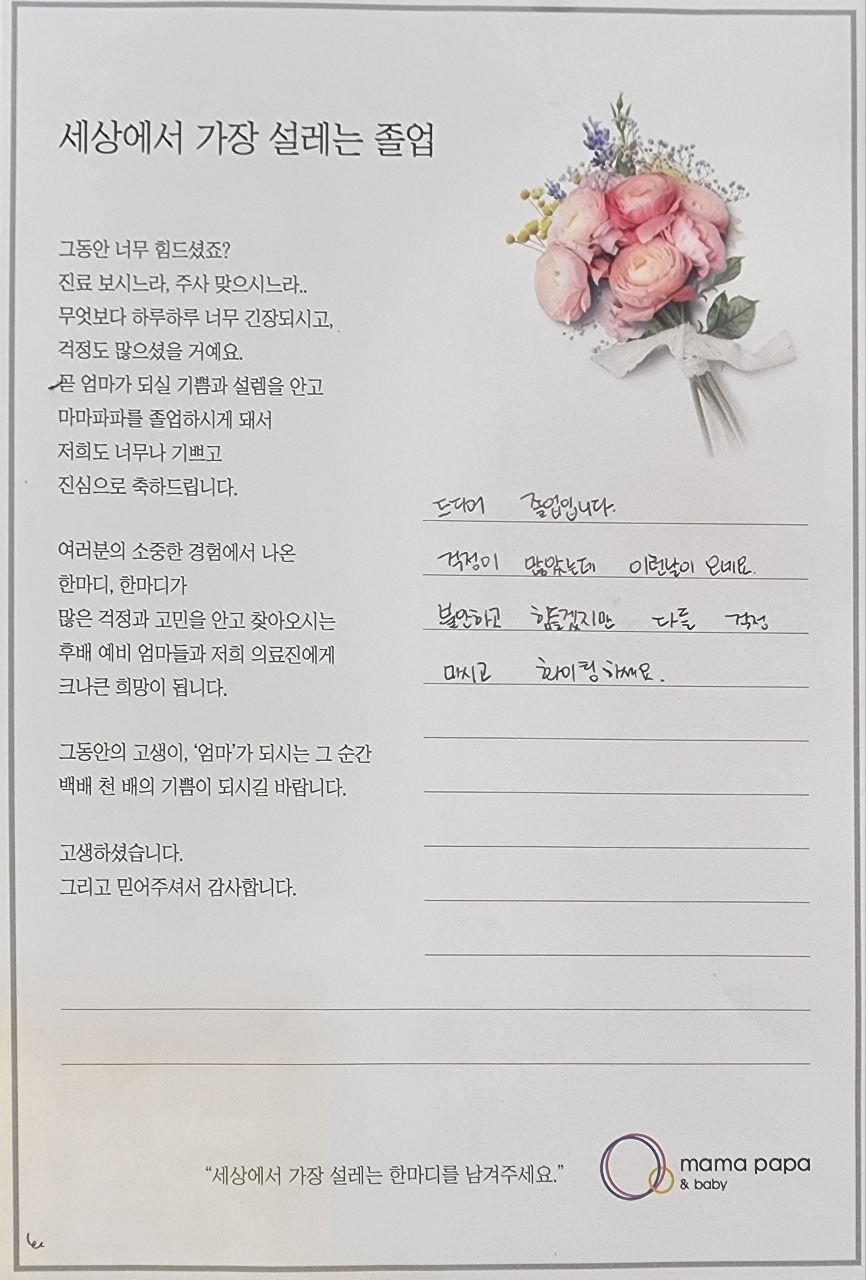 세상에서 가장 설레는 졸업
그동안 너무 힘드셨죠?
진료 보시느라, 주사 맞으시느라..
무엇보다 하루하루 너무 긴장되시고,
걱정도 많으셨을 거예요.
곧 엄마가 되실 기쁨과 설렘을 안고
마마파파를 졸업하시게 돼서
저희도 너무나 기쁘고
진심으로 축하드립니다.
여러분의 소중한 경험에서 나온
한마디, 한마디가
많은 걱정과 고민을 안고 찾아오시는
후배 예비 엄마들과 저희 의료진에게
크나큰 희망이 됩니다.
그동안의 고생이, '엄마'가 되시는 그 순간
백배 천 배의 기쁨이 되시길 바랍니다.
고생하셨습니다.
그리고 믿어주셔서 감사합니다.
드디어 졸업입니다.
걱정이 많았는데 이런날이 오네요.
불안하고 힘들겠지만 다들 걱정
마시고 화이팅 하세요.
“세상에서 가장 설레는 한마디를 남겨주세요.”
mama papa
& baby